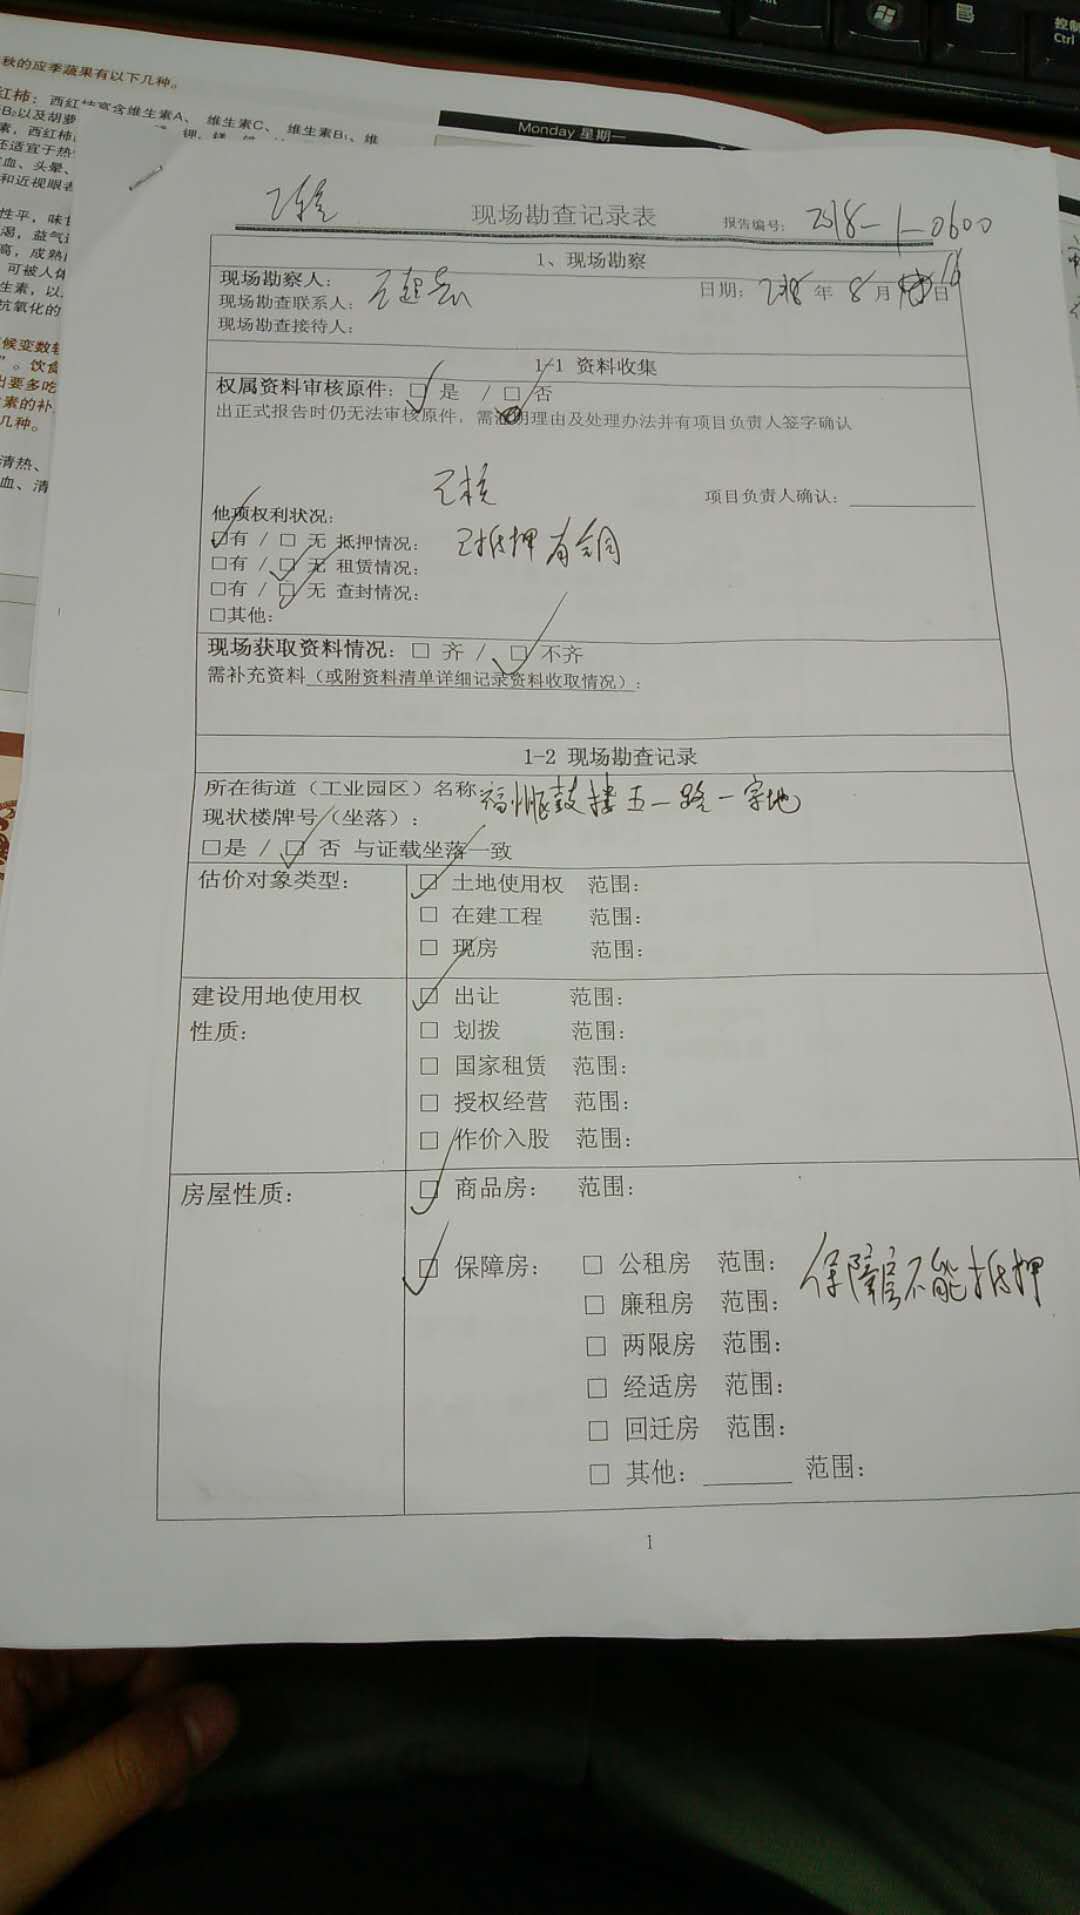 控制
Ctrl
秋的应季蔬果有以下几种。
红柿：西红柿富含维生素A、维生素C、维生素B₁、维
B₂以及胡萝
素，西红柿
还适宜于热
血、头晕、
和近视眼者
性平，味甘
渴，益气
高，成熟
可被人体
生素，以
抗氧化的
候变数较
”。饮食
出要多吃
素的补
几种。
清热、
血、清
Monday 星期一
现场勘查记录表
报告编号：2018-1-0600
1、现场勘察
现场勘察人：
日期：2018年8月16日
现场勘查联系人：
现场勘查接待人：
1-1 资料收集
权属资料审核原件：☑ 是 / □ 否
出正式报告时仍无法审核原件，需注明理由及处理办法并有项目负责人签字确认
已核
项目负责人确认：
他项权利状况：
☑有 / □ 无 抵押情况：已抵押有合同
□有 / ☑ 无 租赁情况：
□有 / ☑ 无 查封情况：
□其他：
现场获取资料情况：□ 齐 / ☑ 不齐
需补充资料（或附资料清单详细记录资料收取情况）：
1-2 现场勘查记录
所在街道（工业园区）名称：福州鼓楼五一路一宗地
现状楼牌号（坐落）：
□是 / ☑ 否 与证载坐落一致
估价对象类型：
☑ 土地使用权 范围：
□ 在建工程 范围：
□ 现房 范围：
建设用地使用权
性质：
☑ 出让 范围：
□ 划拨 范围：
□ 国家租赁 范围：
□ 授权经营 范围：
□ 作价入股 范围：
房屋性质：
☑ 商品房： 范围：
☑ 保障房： □ 公租房 范围：保障房不能抵押
□ 廉租房 范围：
□ 两限房 范围：
□ 经适房 范围：
□ 回迁房 范围：
□ 其他：______ 范围：
1